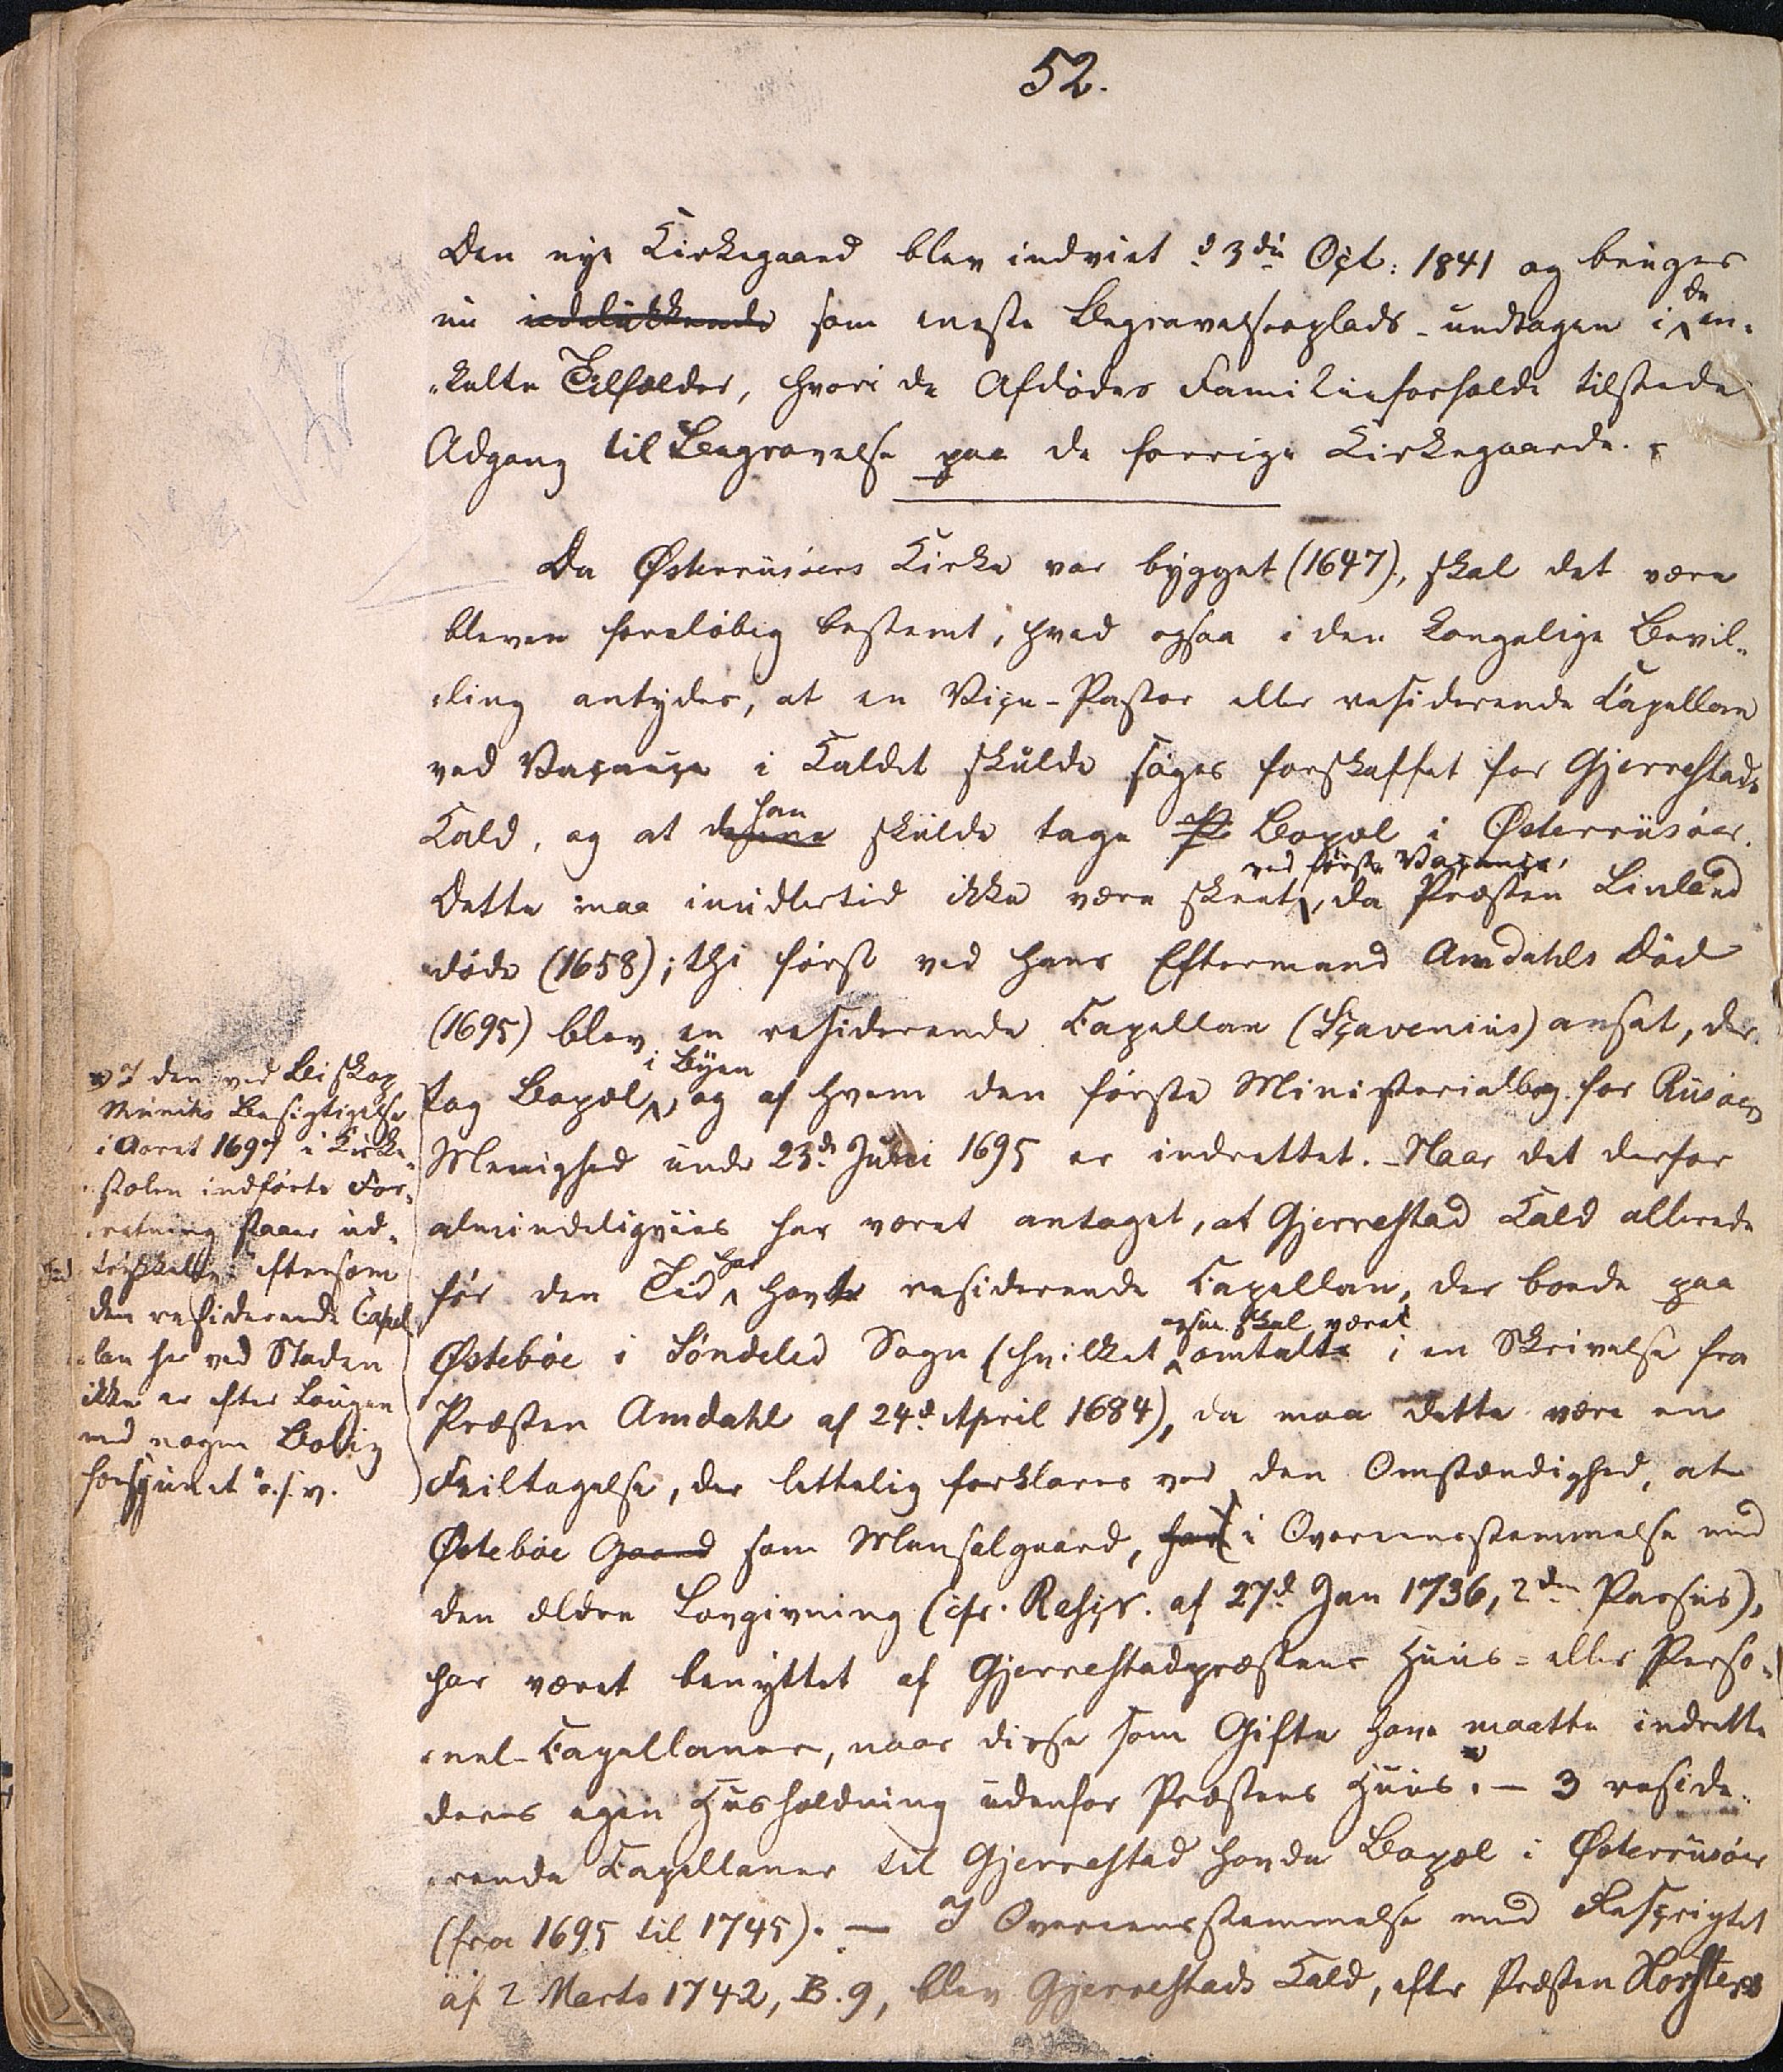 52.
Den nye Kirkegaard blev indviet d 3die Oct: 1841 og bruges
nu udelukkende som eneste Begravelsesplads - undtagen i de en-
-kelte Tilfælder, hvori de Afdødes Familieforholde tilstede
Adgang til Begravelse paa de forrige Kirkegaarde. -
Da Østerriisøers Kirke var bygget (1647), skal det være
bleven foreløbig bestemt, hvad ogsaa i den kongelige Bevil-
-ling antydes, at en Vice-Pastor eller residerende Capellan
ved Vacance i Kaldet skulde søges forskaffet for Gjerrestads
Kald, og at denne han skulde tage P Bopæl i Østerriisøer.
Dette maa imidlertid ikke være skeet ved første Vacance, da Præsten Linland
døde (1658); thi først ved hans Eftermand Amdahls Død
(1695) blev en residerende Capellan (Scavenius) ansat, der
tog Bopæl i Byen, og af hvem den første Ministerialbog for Riisøers
Menighed under 23de Juli 1695 er indrettet. - Naar det derfor
almindeligviis har været antaget, at Gjerrestad Kald allerede
før den Tid har havt residerende Capellan, der boede paa
Østebøe i Søndeled Sogn (hvilket ogsaa skal været omtalt i en Skrivelse fra
Præsten Amdahl af 24d April 1684), da maa dette være en
Feiltagelse, der lettelig forklares ved den Omstændighed, at
Østebøe Gaard som Mensalgaard, har i Overeensstemmelse med
den ældre Lovgivning (cfr. Rescr. af 27d Jan 1736, 2den Passus),
har været benyttet af Gjerrestadpræstens Huus- eller Perso-
-nel-Capellaner, naar disse som Gifte have maatte indrette
deres egen Huusholdning udenfor Præstens Huus. - 3 reside-
-rende Capellaner til Gjerrestad havde Bopæl i Østerriisøer
(fra 1695 til 1745). - I Overeensstemmelse med Rescriptet
af 2 Marts 1742, B. 9, blev Gjerrestads Kald, efter Præsten Horsters
I den ved Biskop
Munchs Besigtigelse
i Aaret 1697 i Kirke-
-stolen indførte For-
-retning staaer ud-
trykkelig: eftersom
den residerende Capel
-lan her ved Staden
ikke er efter Lougen
med nogen Bolig
forsynet o.s.v.